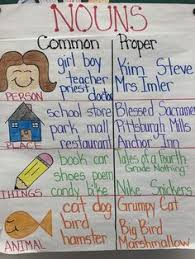 NOUNS
Common Proper
girl boy
teacher
priest doctor
PERSON
Kim Steve
Mrs Imler
school store
park mall
restaurant
PLACE
Blessed Sacrame
Pittsburgh Mills
Anchor Inn
book car
shoes poem
candy bike
THINGS
Tales of a Fourth
Grade Nothing
Nike Snickers
cat dog
bird
hamster
ANIMAL
Grumpy Cat
Big Bird
Marshmallow